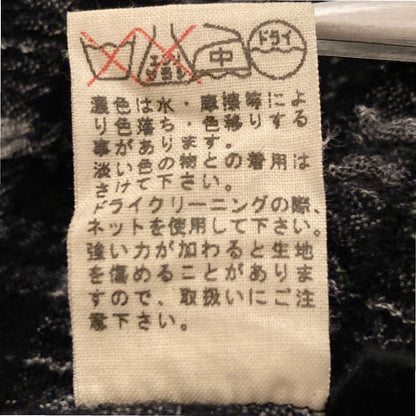 エンソサラシ 中 ドライ
濃色は水・摩擦等によ
り色落ち・色移りする
事があります。
淡い色の物との着用は
さけて下さい。
ドライクリーニングの際、
ネットを使用して下さい。
強い力が加わると生地
を傷めることがありま
すので、取扱いにご注
意下さい。